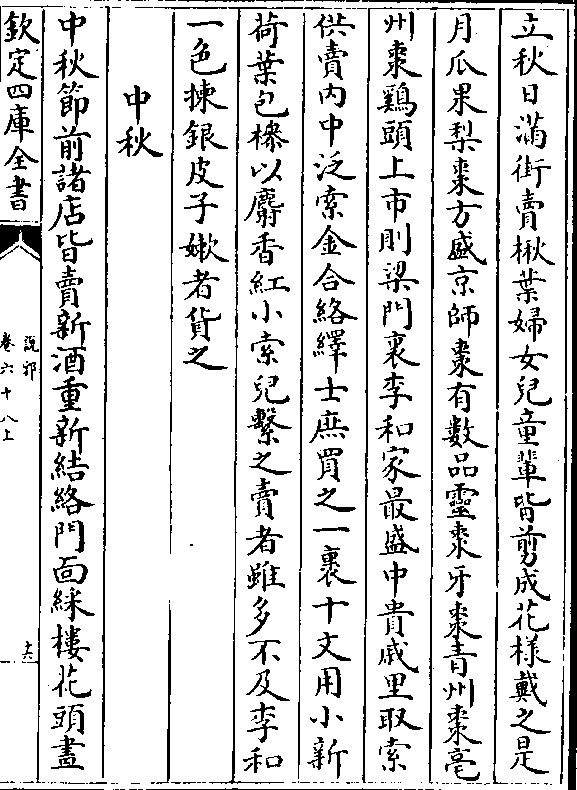 立秋日滿街賣楸葉婦女兒童輩皆剪成花樣戴之是
月瓜果梨棗方盛京師棗有數品靈棗牙棗青州棗亳
州棗鷄頭上市則梁門裏李和家最盛中貴戚里取索
供賣内中泛索金合絡繹士庶買之一裹十文用小新
荷葉包糝以麝香紅小索兒繫之賣者雖多不及李和
一色揀銀皮子嫩者貨之
中秋
中秋節前諸店皆賣新酒重新結絡門面綵樓花頭畫
欽定四庫全書
說郛
卷六十八上
六